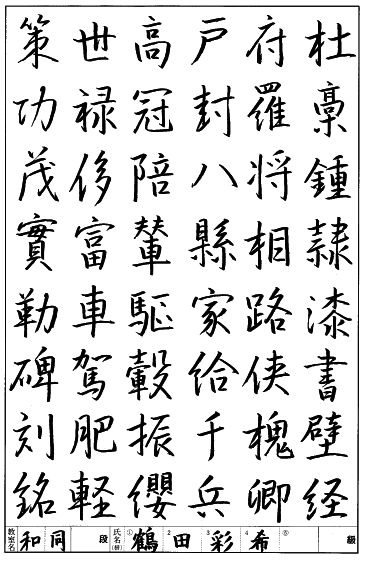 杜稾鍾隷漆書壁経
府羅将相路侠槐卿
戸封八縣家給千兵
高冠陪輦駆轂振纓
世禄侈富車駕肥軽
策功茂實勒碑刻銘
教室名 和同 段 氏名(号) ① 鶴 2 田 3 彩 4 希 ⑤ 級